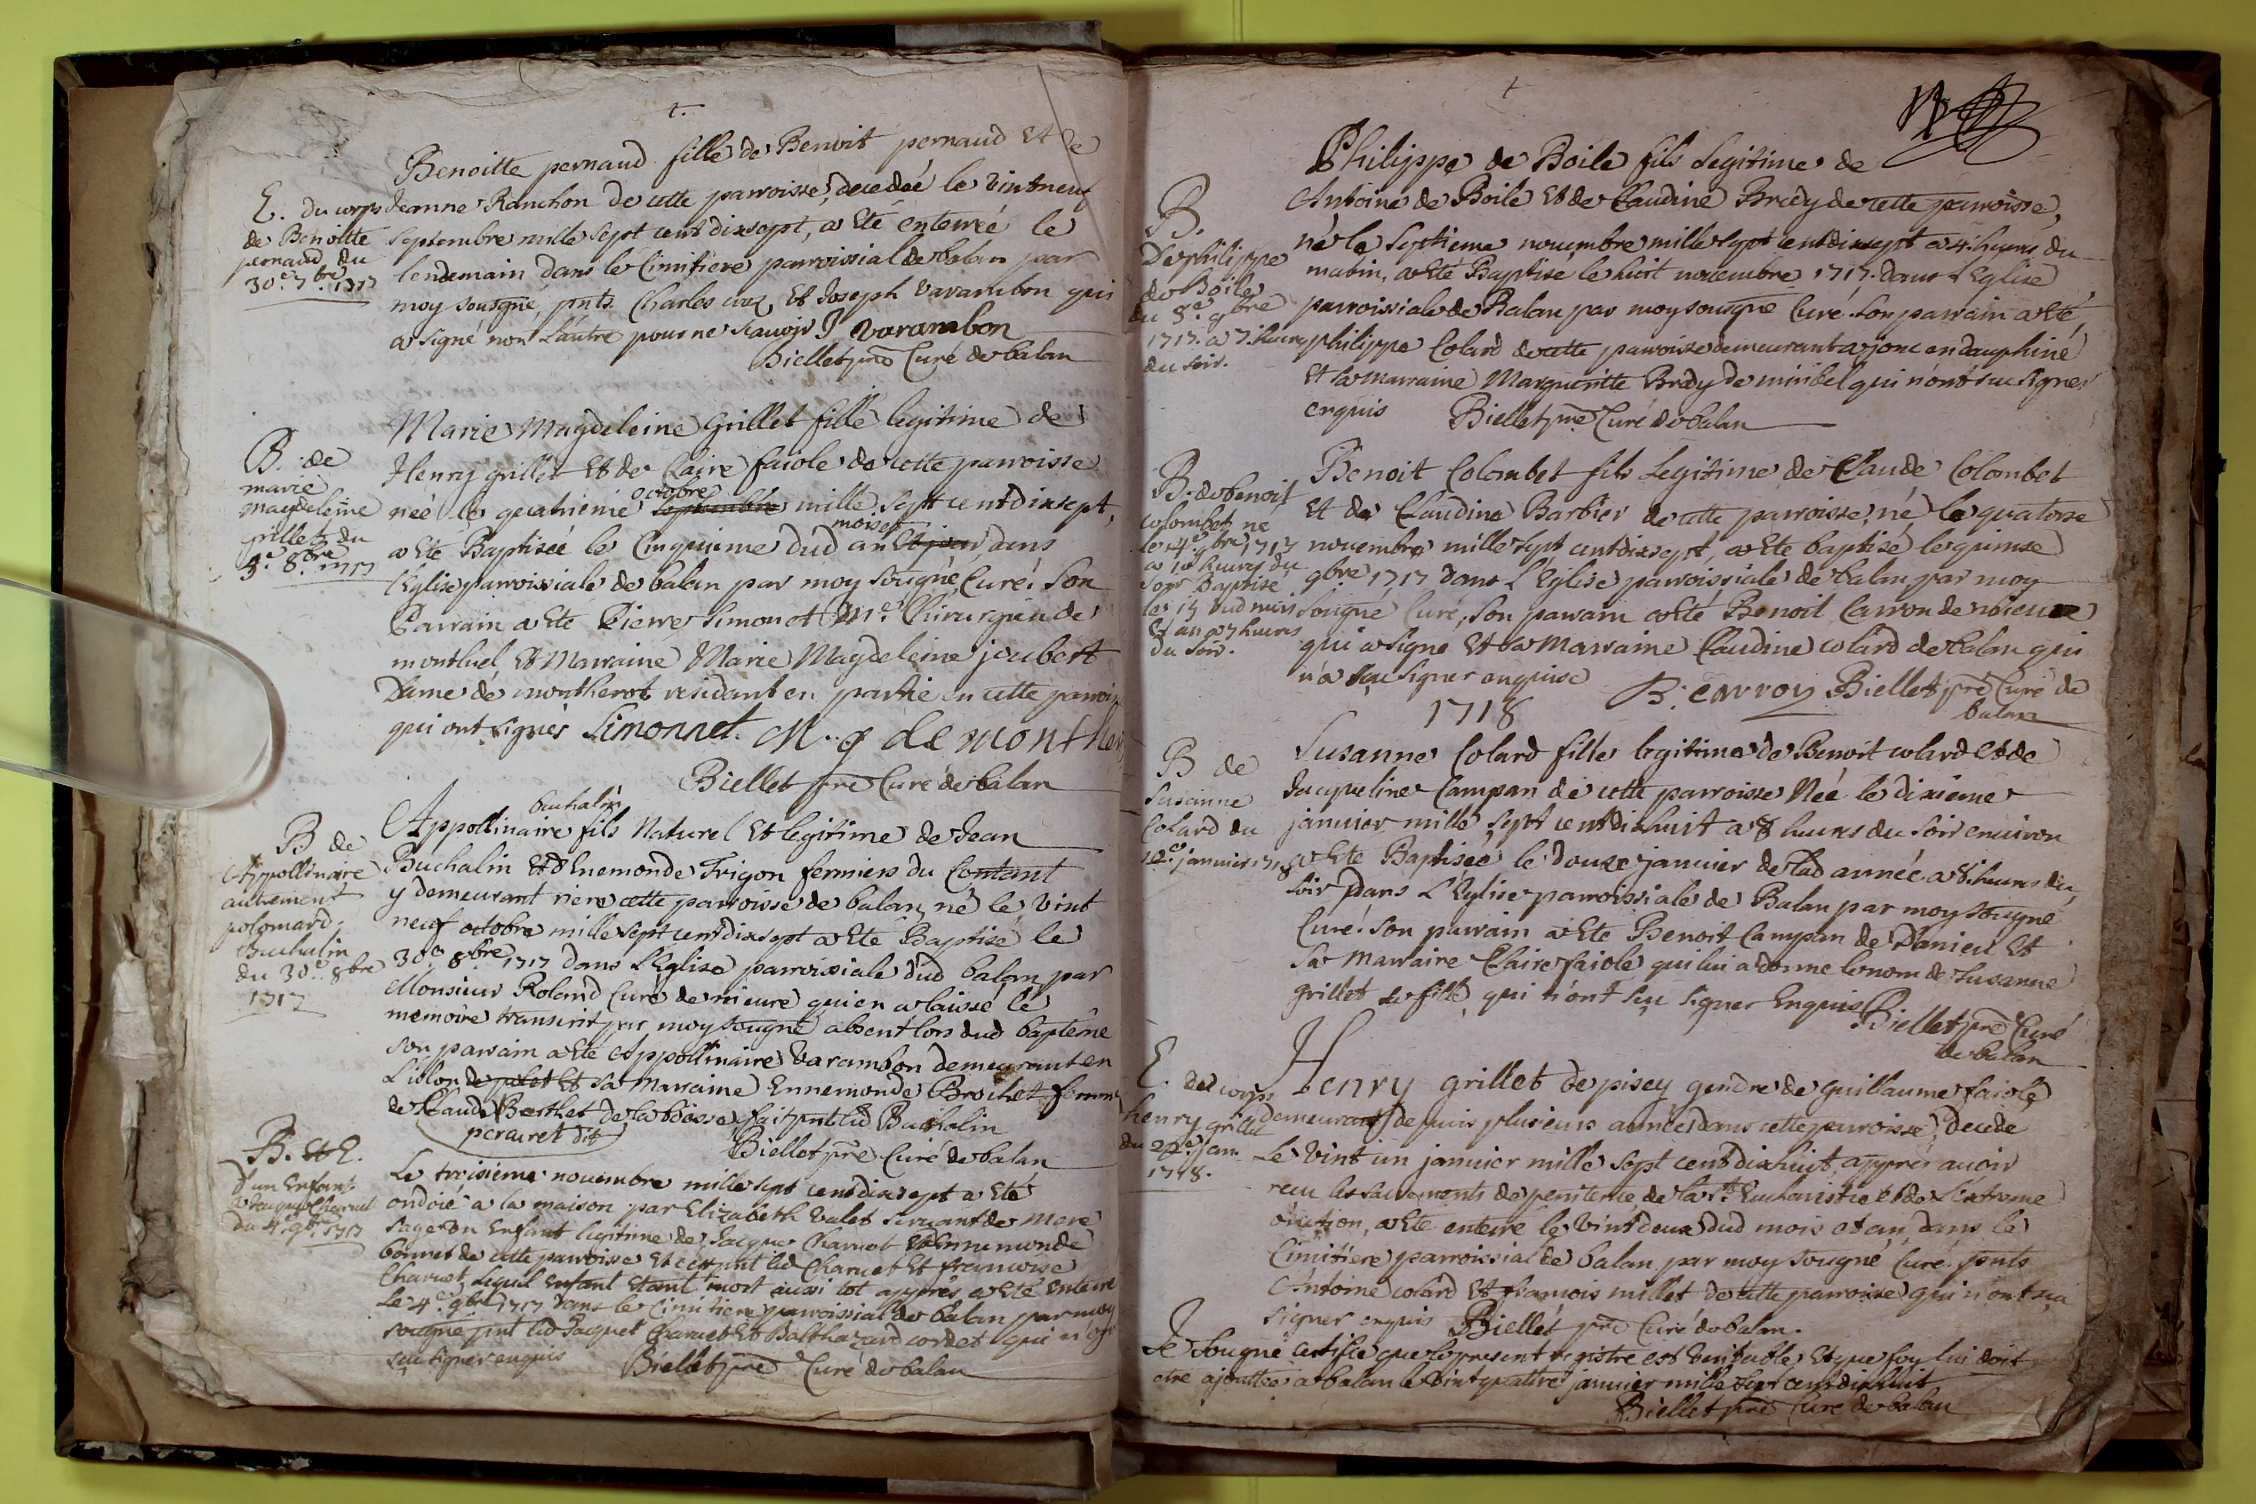 Benoitte pernaud fille de Benoit pernaud Et de
E. du corps
de Benoitte
pernaud du
30.e 7.bre 1717
Jeanne Ranchon de cette parroisse, decedéé le vint neuf
septembre mille sept cent dixsept, a Eté enterréé le
lendemain dans le Cimitiere parroissial de balan par
moy sousigné, pnts Charles Et Joseph Varambon qui
a signé non L'autre pour ne scavoir J Varambon
Biellet pre Curé de balan
B. de
marie
magdeleine
grillet du
5.e 8.bre 1717
Marie Magdeleine Grillet fille legitime de
Henry grillet Et de Claire faiole de cette parroisse
néé le quatriéme octobre septembre mille sept cent dixsept,
a Eté Baptiséé le Cinquieme dud mois et an dans
l'Eglise parroissiale de balan par moy sousigné Curé. Son
Parrain a Eté Pierre Simonet M.e Chirurgien de
montluel Et Marraine Marie Magdeleine joubert
Dame de montherot residant en partie en cette parroisse
qui ont signés Simonnet. M. g de monther
Biellet pre Curé de balan
B de
Appollinaire
autrement
polomard
Buchalin
du 30.e 8bre
1717
Appollinaire buchalin fils Naturel Et legitime de Jean
Buchalin Et d'Enemonde Trigon fermiers du Contant
y demeurant riere cette parroisse de balan, né le vint
neuf octobre mille sept cent dixsept a Eté Baptisé le
30.e 8bre 1717 dans L'Eglise parroissiale dud balan par
Monsieur Roland Curé de nieure qui en a laissé le
memoire transcrit par moy sousigné absent lors dud baptême
son parrain a Eté Appollinaire Varambon demeurant en
sa marraine Ennemonde Brochet femme
de Claude Berthet de la boisse fait pnt led Buchalin
perairet dit
Biellet pre Curé de balan
B. Et E.
d'un Enfant
a Jacques Charvet
du 4.e 9bre 1717
Le troisieme novembre mille sept cent dixsept a Eté
ondoié a la maison par Elizabeth Valet servant de mere
sage un Enfant legitime de Jacques Charvet Et Ennemonde
bonnet de cette parroisse Et ce pnt led Charvet Et francoise
Charvet, lequel Enfant Etant mort aussi tot apprés a Eté Enterré
Le 4.e 9bre 1717 dans le Cimitiere parroissial de balan par moy
sousigné pnt led Jacques Charvet Et Balthazard cordet qui n'ont
sçu signer enquis Biellet pre Curé de balan
B.
De philippe
de Boile
du 8.e 9bre
1717. a 7. heures
du soir.
Philippe de Boile fils legitime de
Antoine de Boile Et de Claudine Brady de cette parroisse,
né le septieme novembre mille sept cent dixsept a 4. heures du
matin, a Eté Baptisé le huit novembre 1717. dans L'Eglise
parroissiale de Balan par moy sousigné Curé. Son parrain a Eté
philippe Colard de cette parroisse demeurant a jonc en dauphiné
Et sa marraine Margueritte Brady de miribel qui n'ont sçu signer
enquis Biellet pre Curé de balan
B. de benoit
colombet né
le 14.e 9bre 1717
a 10 heures du
soir Baptisé
le 15 dud mois
Et an a 7 heures
du soir.
Benoit Colombet fils Legitime de Claude Colombet
Et de Claudine Barbier de cette parroisse, né le quatorse
novembre mille sept cent dixsept, a Eté baptisé le quinse
9bre 1717 dans L'Eglise parroissiale de balan par moy
sousigné Curé, Son parrain a Eté Benoit Carron de nieure
qui a signé Et sa Marraine Claudine colard de balan qui
n'a sçu signer enquise B. carron Biellet pre Curé de
balan
1718
B de
Susanne
Colard du
12.e janvier 1718
Susanne Colard fille legitime de Benoit colard Et de
Jacqueline Campan de cette parroisse Néé le dixieme
janvier mille sept cent dixhuit a 8 heures du soir environ
a Eté Baptiséé le douze janvier de lad année a 8. heures du
soir dans L'Eglise parroissiale de Balan par moy sousigné
Curé. Son parrain a Eté Benoit Campan de Danieu Et
Sa Marraine Claire faiole qui lui a donné le nom de Susanne
grillet sa fille qui n'ont sçu signer Enquis Biellet pre Curé
de balan
E. du corps
henry grillet
du 22.e janv.
1718.
Henry grillet de pisey gendre de guillaume faiole
demeurant depuis plusieurs années dans cette parroisse, decedé
Le vint un janvier mille sept cent dixhuit, apprés avoir
recu les sacrements de penitence de la S.te Eucharistie Et de L'extreme
onction, a Eté enterré le vint deux dud mois et an, dans le
Cimitiere parroissial de balan par moy sousigné Curé pnts
Antoine colard Et francois millet de cette parroisse qui n'ont sçu
signer enquis Biellet pre Curé de balan.
Je sousigné certifie que le present registre est veritable Et que foy lui doit
etre ajouttée a balan le vint quattre janvier mille sept cent dixhuit
Biellet pre Curé de balan